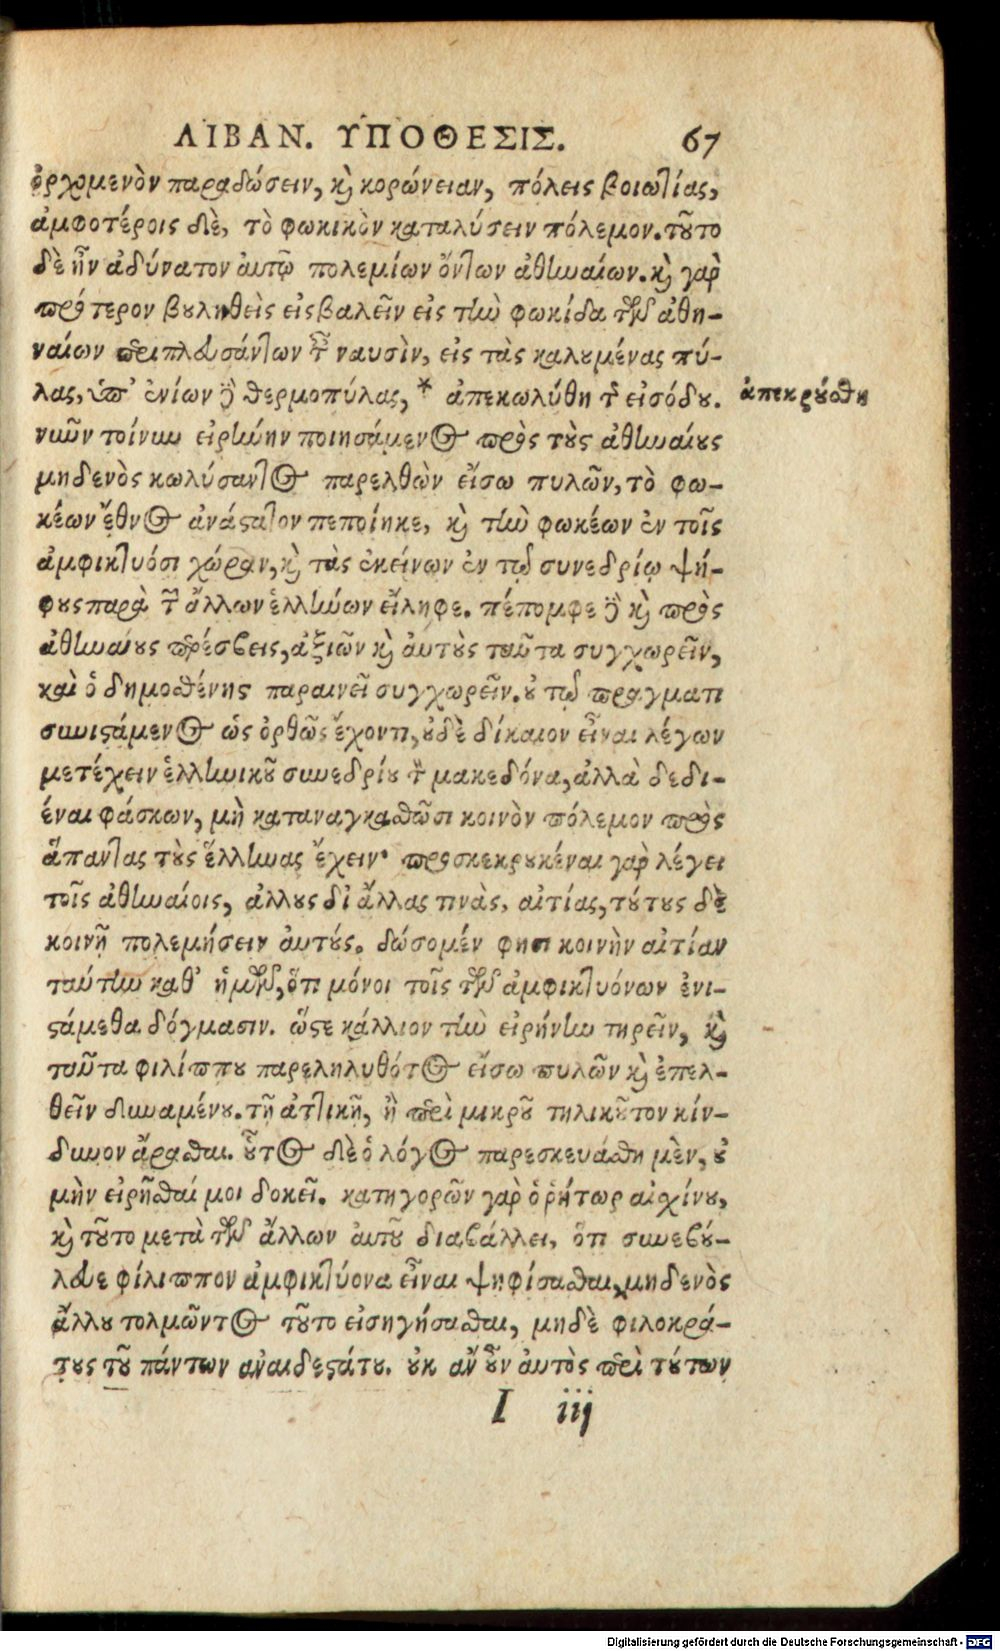 ΛΙΒΑΝ. ΥΠΟΘΕΣΙΣ. 67
ὀρχομενὸν παραδώσειν, κὶ κορώνειαν, πόλεις βοιωτίας,
ἀμφοτέροις δὲ, τὸ φωκικὸν καταλύσειν πόλεμον. τοῦτο
δὲ ἦν ἀδύνατον αὐτῷ πολεμίων ὄντων ἀθηναίων. κὶ γαρ
πρότερον βουληθεὶς εἰσβαλεῖν εἰς τὴν φωκίδα τῶν ἀθη-
ναίων περιπλευσάντων τ̃ ναυσὶν, εἰς τὰς καλουμένας πύ-
λας, ὑπ' ἐνίων δὲ θερμοπύλας, * ἀπεκωλύθη τ̃ εἰσόδου.
ἀπεκρούσθη
νῦν τοίνυν εἰρήνην ποιησάμενος πρὸς τοὺς ἀθηναίους
μηδενὸς κωλύσαντος παρελθὼν εἴσω πυλῶν, τὸ φω-
κέων ἔθνος ἀνάστατον πεποίηκε, κὶ τὴν φωκέων ἐν τοῖς
ἀμφικτυόσι χώραν, κὶ τὰς ἐκείνων ἐν τῷ συνεδρίῳ ψή-
φους παρὰ τ̃ ἄλλων ἑλλήνων εἴληφε. πέπομφε δὲ κὶ πρὸς
ἀθηναίους πρέσβεις, ἀξιῶν κὶ αὐτοὺς ταῦτα συγχωρεῖν,
καὶ ὁ δημοσθένης παραινεῖ συγχωρεῖν. οὐ τῷ πράγματι
συνιστάμενος ὡς ὀρθῶς ἔχοντι, οὐδὲ δίκαιον εἶναι λέγων
μετέχειν ἑλληνικοῦ συνεδρίου τ̃ μακεδόνα, ἀλλὰ δεδι-
έναι φάσκων, μὴ καταναγκασθῶσι κοινὸν πόλεμον πρὸς
ἅπαντας τοὺς ἕλληνας ἔχειν· προσκεκρουκέναι γαρ λέγει
τοῖς ἀθηναίοις, ἄλλους δι ἄλλας τινὰς, αἰτίας, τούτους δὲ
κοινῇ πολεμήσειν αὐτούς. δώσομέν φησι κοινὴν αἰτίαν
ταύτην καθ' ἡμῶν, ὅτι μόνοι τοῖς τῶν ἀμφικτυόνων ἐνι-
στάμεθα δόγμασιν. ὥστε κάλλιον τὴν εἰρήνην τηρεῖν, κὶ
ταῦτα φιλίππου παρεληλυθότος εἴσω πυλῶν κὶ ἐπελ-
θεῖν δυναμένου. τῇ ἀττικῇ, ἢ περὶ μικροῦ τηλικοῦτον κίν-
δυνον ἄρασθαι. οὗτος δὲ ὁ λόγος παρεσκευάσθη μὲν, οὐ
μὴν εἰρῆσθαί μοι δοκεῖ. κατηγορῶν γαρ ὁ ῥήτωρ αἰσχίνου,
κὶ τοῦτο μετὰ τῶν ἄλλων αὐτοῦ διαβάλλει, ὅτι συνεβού-
λευε φίλιππον ἀμφικτύονα εἶναι ψηφίσασθαι, μηδενὸς
ἄλλου τολμῶντος τοῦτο εἰσηγήσασθαι, μηδὲ φιλοκρά-
τους τοῦ πάντων ἀναιδεστάτου. οὐκ ἂν οὖν αὐτὸς περὶ τούτων
I iij
Digitalisierung gefördert durch die Deutsche Forschungsgemeinschaft - DFG